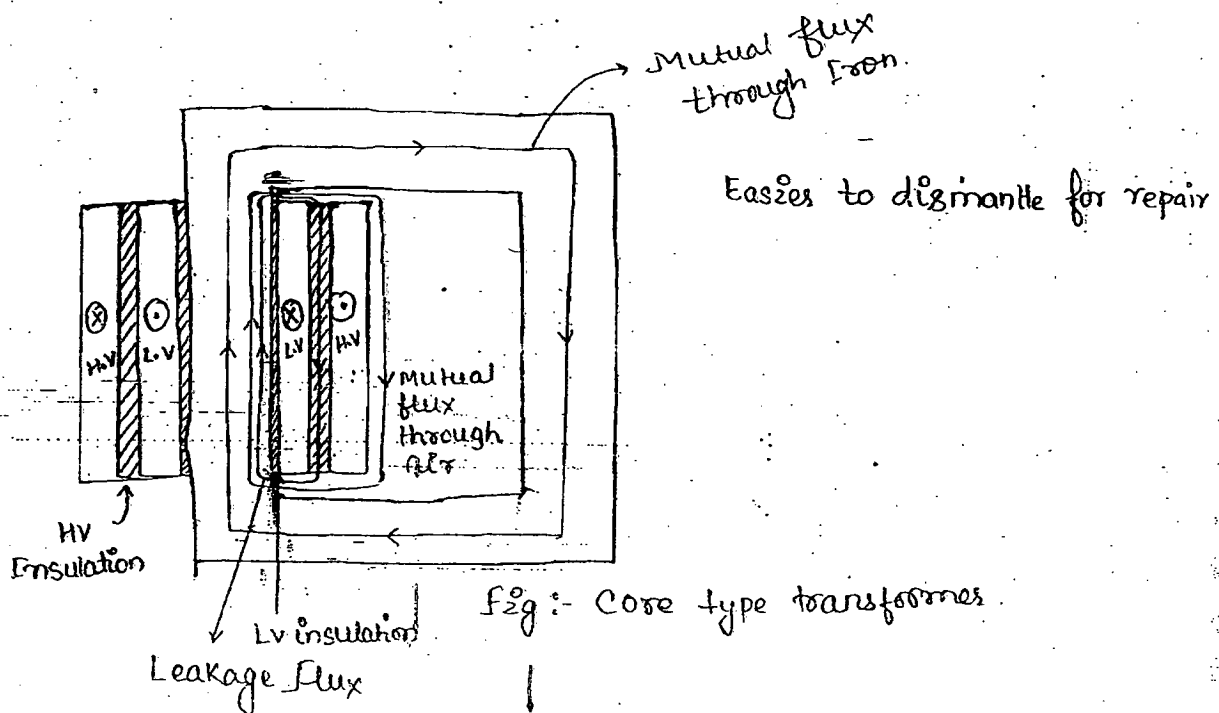 Mutual flux
through Iron.
Easies to dismantle for repair
H.V
L.V
L.V
H.V
Mutual
flux
through
Air
HV
Insulation
Lv insulation
Leakage flux
Fig :- Core type transformes.